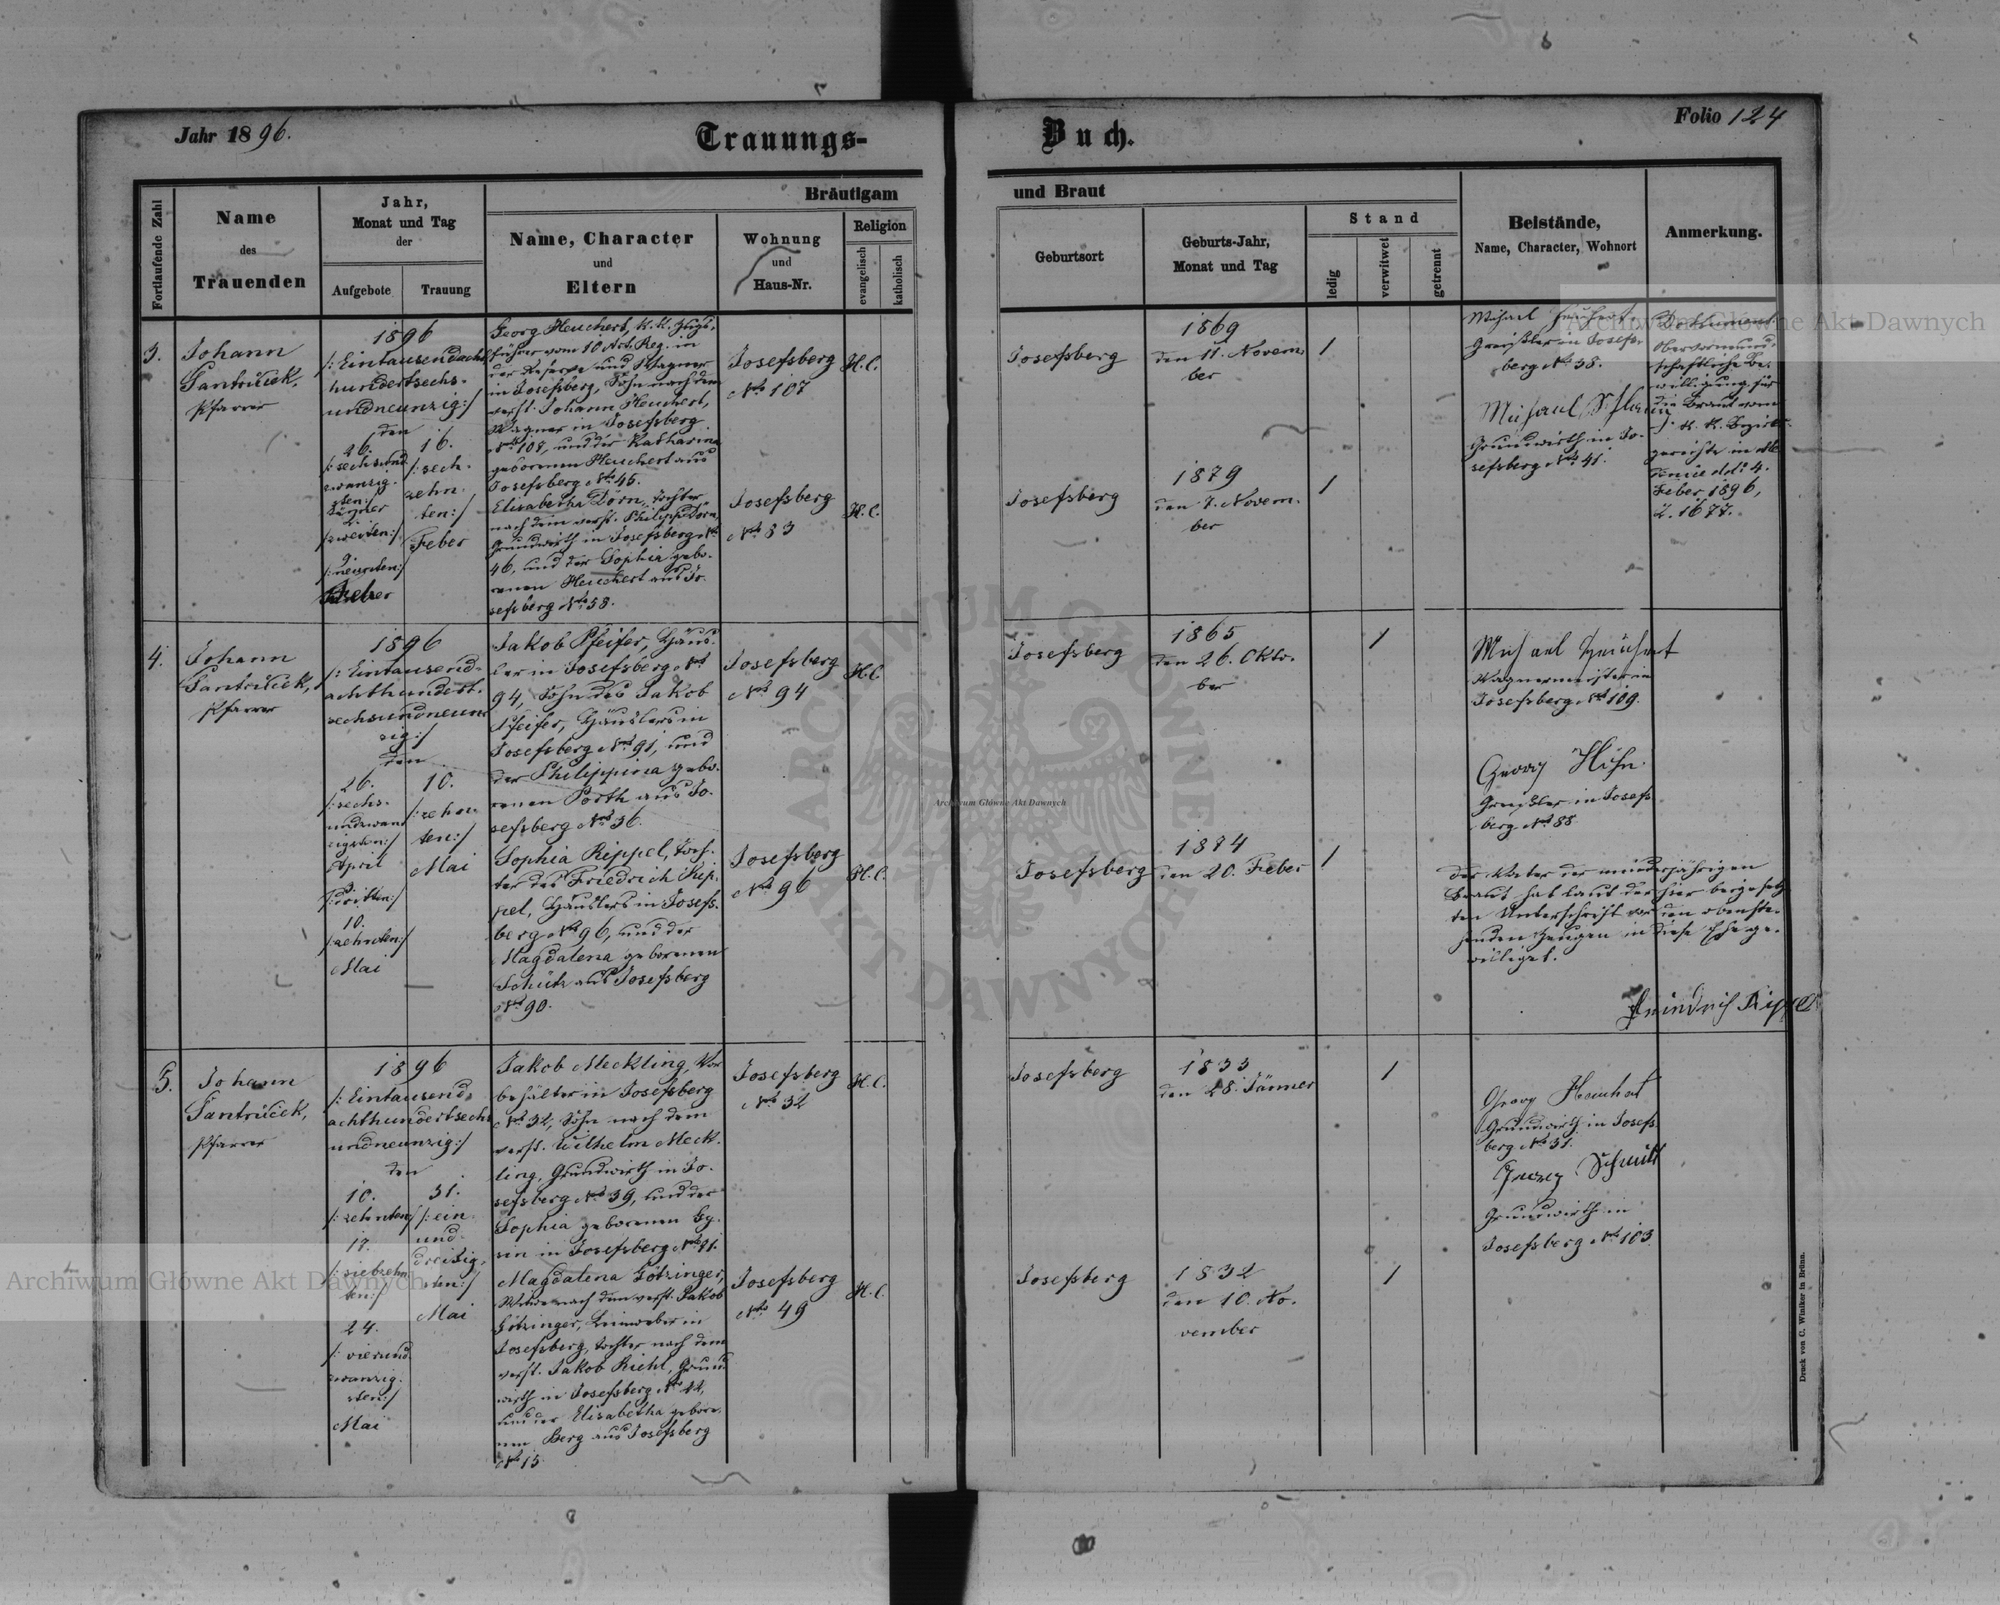 Jahr 1896.
Trauungs-
Buch.
Folio 124
Fortlaufende Zahl
Name
des
Trauenden
Jahr,
Monat und Tag
der
Aufgebote
Trauung
Bräutigam
und Braut
Name, Character
und
Eltern
Wohnung
und
Haus-Nr.
Religion
evangelisch
katholisch
Geburtsort
Geburts-Jahr,
Monat und Tag
Stand
ledig
verwitwet
getrennt
Beistände,
Name, Character, Wohnort
Anmerkung.
3.
Johann
Pfarrer
1896
/: Eintausendacht
hundertsechs-
undneunzig :/
den
26.
/: sechsund
zwanzig-
sten :/
Jänner
2.
/: zweiten :/
9.
/: neunten :/
Feber
16.
/: sech-
zehn-
ten :/
Feber
Georg Heuchert, K. K. Zugs-
führer vom 10 Art. Reg. in
der Reserve und Wagner
in Josefsberg, Sohn nach dem
verst. Johann Heuchert,
Wagner in Josefsberg
Nro 107, und der Katharina
geborenen Heuchert aus
Josefsberg Nro 45.
Elisabetha Dorn, Tochter
nach dem verst. Philipp Dorn,
Grundwirth in Josefsberg Nro
46, und der Sophia gebo-
renen Heuchert aus Jo-
sefsberg Nro 58.
Josefsberg
Nro 107
H. C.
Josefsberg
Nro 83
H. C.
Josefsberg
1869
den 11. Novem-
ber
1
Josefsberg
1879
den 7. Novem-
ber
1
Michael Heuchert
Greißler in Josefs-
berg Nro 58.
Michael
Grundwirth in Jo-
sefsberg Nro 41.
Dokument:
Obervormund-
schaftliche Be-
willigung für
die Braut vom
k. k. Bezirks-
gerichte in Me-
denice ddo 4.
Feber 1896,
Z. 1677.
4.
Johann
Pfarrer
1896
/: Eintausend-
achthundert-
sechsundneun-
zig :/
den
26.
/: sechs-
undzwan-
zigsten :/
April
3.
/: dritten :/
10.
/: zehnten :/
Mai
10.
/: zehn-
ten :/
Mai
Jakob Pfeifer, Häus-
ler in Josefsberg Nro
94, Sohn des Jakob
Pfeifer, Häuslers in
Josefsberg Nro 91, und
der Philippina gebo-
renen Porth aus Jo-
sefsberg Nro 36.
Sophia Rippel, Toch-
ter des Friedrich Rip-
pel, Häuslers in Josefs-
berg Nro 96, und der
Magdalena geborenen
Schütz aus Josefsberg
Nro 90.
Josefsberg
Nro 94
H. C.
Josefsberg
Nro 96
H. C.
Josefsberg
1865
den 26. Okto-
ber
1
Josefsberg
1874
den 20. Feber
1
Michael Heuchert
Wagnermeister in
Josefsberg Nro 109.
Georg Höhn
Greißler in Josefs-
berg Nro 88
Der Vater der minderjährigen
Braut hat laut der hier beigesetz-
ten Unterschrift vor den obenste-
henden Zeugen in diese Ehe ge-
williget.
Friedrich Rippel
5.
Johann
Pfarrer
1896
/: Eintausend-
achthundertsechs-
undneunzig :/
den
10.
/: zehnten :/
17.
/: siebzehn-
ten :/
24.
/: vierund
zwanzig-
sten :/
Mai
31.
/: ein-
und-
dreißig-
sten :/
Mai
Jakob Meckling, Vor-
behälter in Josefsberg
Nro 32, Sohn nach dem
verst. Wilhelm Meck-
ling, Grundwirth in Jo-
sefsberg Nro 39, und der
Sophia geborenen
in Josefsberg
Magdalena Götzinger,
Witwe nach dem verst. Jakob
Götzinger, Leinweber in
Josefsberg, Tochter nach dem
verst. Jakob Riehl, Grund
wirth in Josefsberg
und der Elisabetha gebore-
nen Berg aus Josefsberg
Nro 15
Josefsberg
Nro 32
H. C.
Josefsberg
Nro 49
H. C.
Josefsberg
1833
den 28. Jänner
1
Josefsberg
1832
den 10. No-
vember
1
Georg Heuchert
Grundwirth in Josefs-
berg Nro 31.
Georg Schmidt
Grundwirth in
Josefsberg Nro 103
Druck von C. Winiker in Brünn.
Archiwum Główne Akt Dawnych
Archiwum Główne Akt Dawnych
Archiwum Główne Akt Dawnych
ARCHIWUM GŁÓWNE AKT DAWNYCH